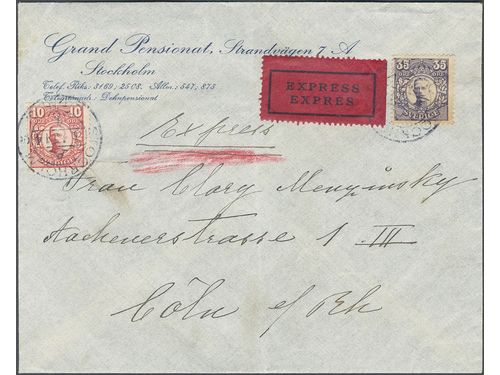 Grand Pensionat, Strandvägen 7 A
Stockholm
Telef. Riks: 3169, 2508. Allm.: 547, 873
Telegramadr.: Dehnpensional
EXPRESS
EXPRES
35 35
SVERIGE
10 10
Express
Frau Clary
Aachenerstrasse 1 III
Cöln a/Rh